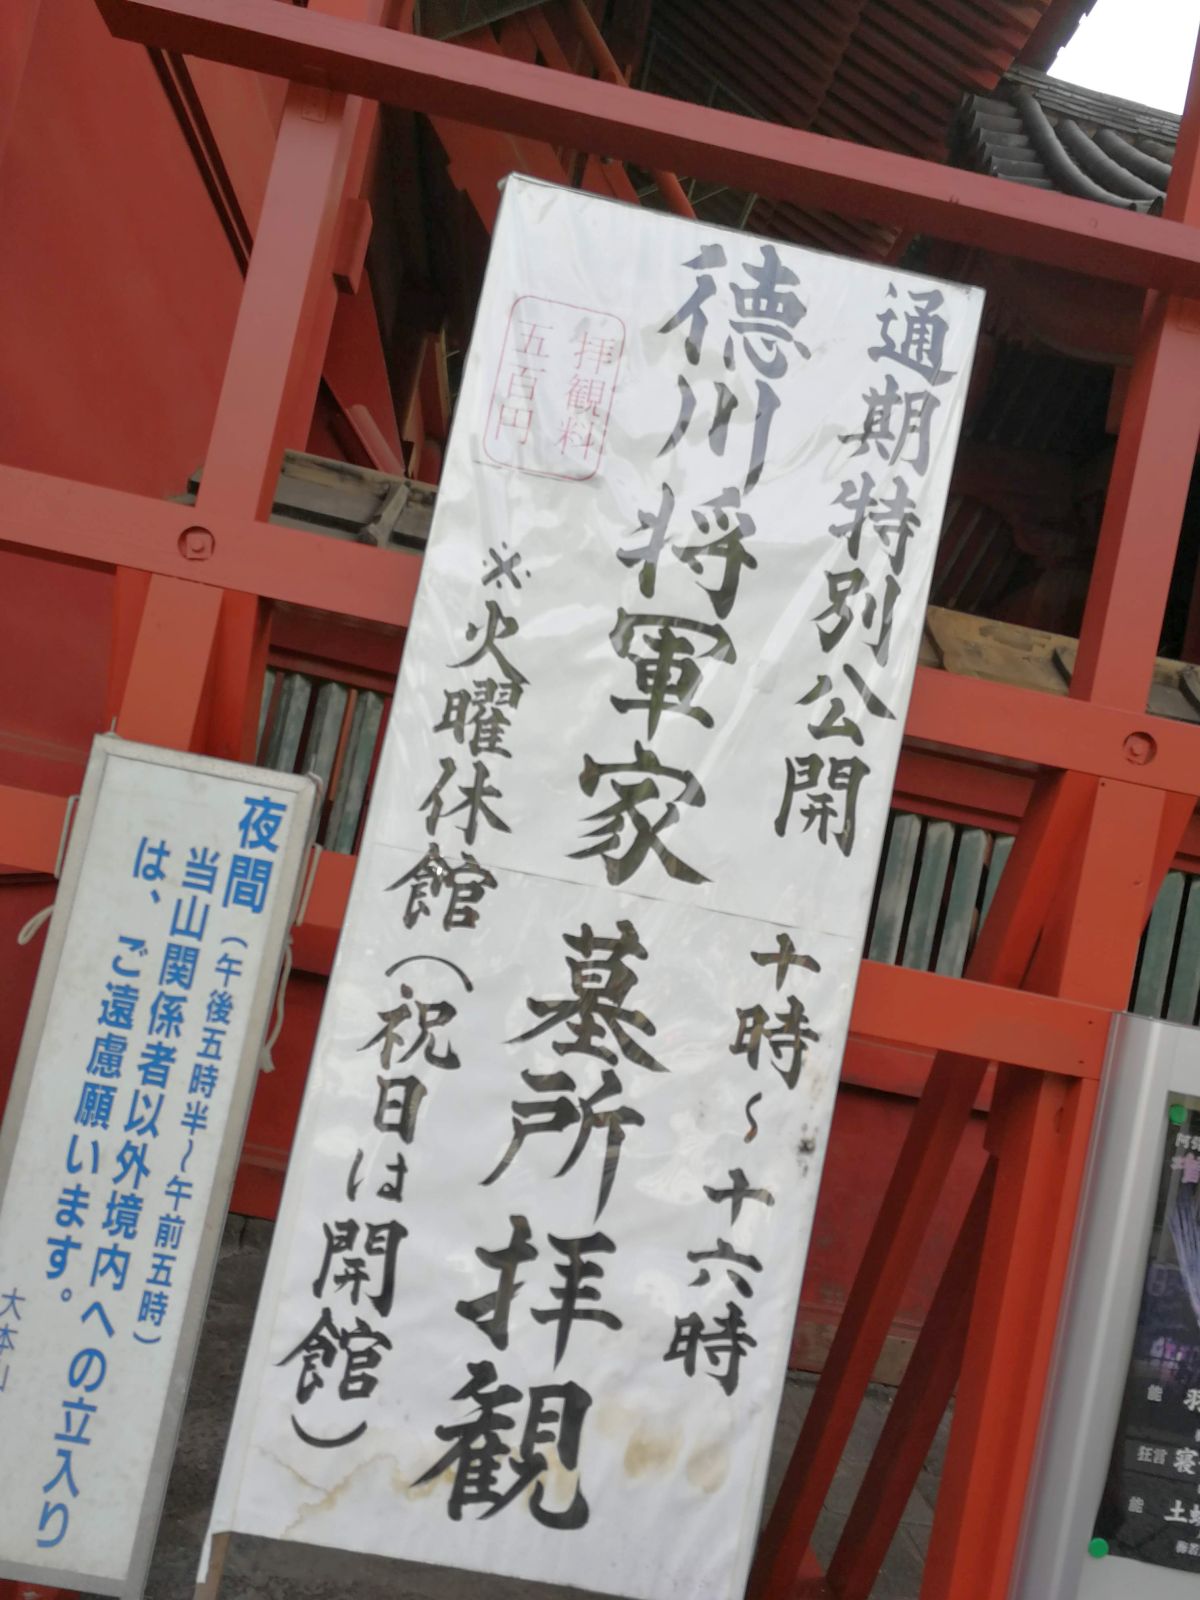 通期特別公開 十時～十六時
徳川将軍家 墓所拝観
※火曜休館(祝日は開館)
拝観料
五百円
夜間(午後五時半～午前五時)
当山関係者以外境内への立入り
は、ご遠慮願います。
大本山
能
狂言
能